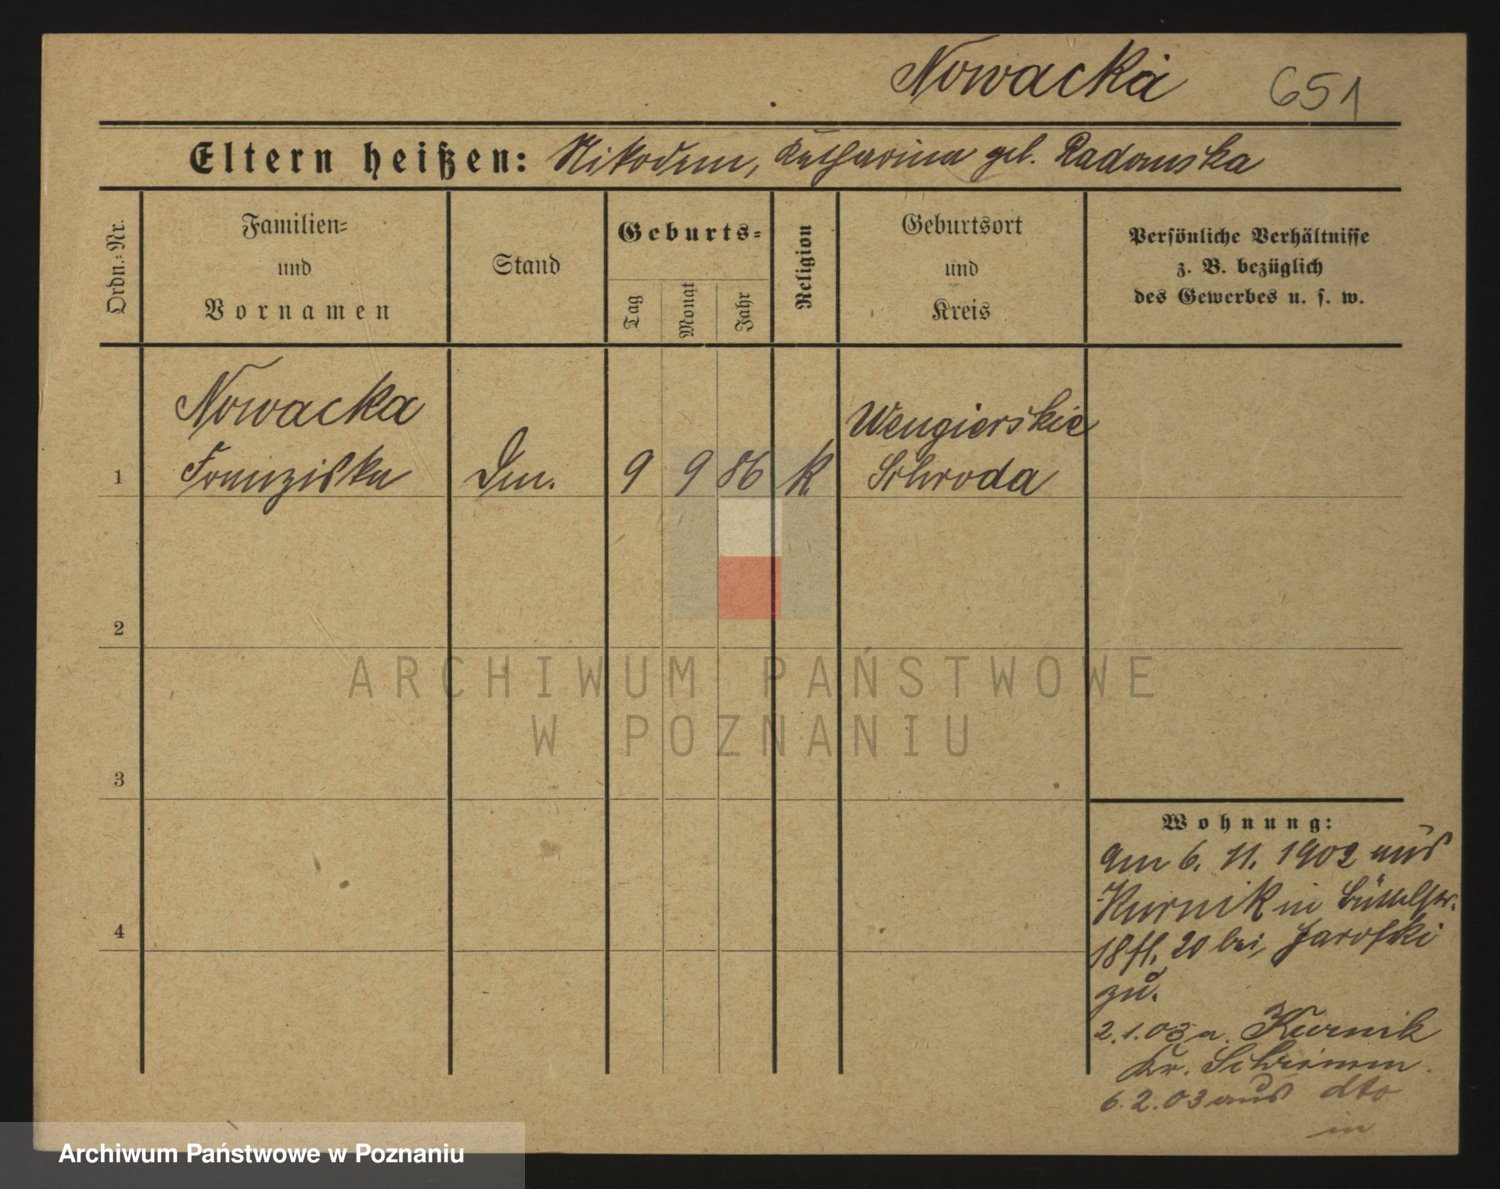 Nowacka 651
Eltern heißen: Nikodem, Katharina geb. Radomska
Ordn.-Nr.
Familien-
und
Vornamen
Stand
Geburts-
Tag
Monat
Jahr
Religion
Geburtsort
und
Kreis
Persönliche Verhältnisse
z. B. bezüglich
des Gewerbes u. s. w.
Nowacka
1 Franziska
9 9 86 K
Wengierskie
Schroda
2
3
4
Wohnung:
am 6. 11. 1902 aus
Kurnik in Büttelstr.
18 20 bei Jarofski
zu.
2.1.03 n. Kurnik
Kr. Schrimm.
6.2.03 aus dto
in
ARCHIWUM PAŃSTWOWE
W POZNANIU
Archiwum Państwowe w Poznaniu